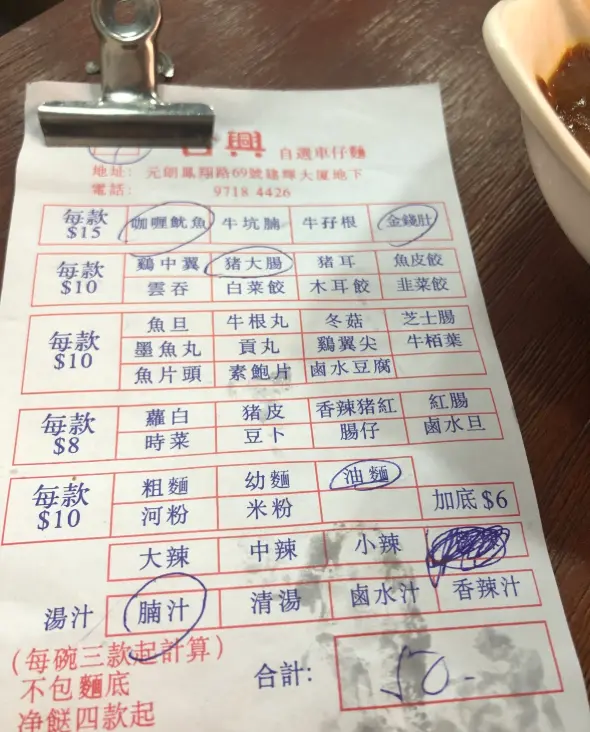 興 自選車仔麵
地址: 元朗鳳翔路69號建輝大厦地下
電話: 9718 4426
每款 $15 咖喱魷魚 牛坑腩 牛孖根 金錢肚
每款 $10 鷄中翼 猪大腸 猪耳 魚皮餃
雲吞 白菜餃 木耳餃 韭菜餃
每款 $10 魚旦 牛根丸 冬菇 芝士腸
墨魚丸 貢丸 鷄翼尖 牛栢葉
魚片頭 素鮑片 鹵水豆腐
每款 $8 蘿白 猪皮 香辣猪紅 紅腸
時菜 豆卜 腸仔 鹵水旦
每款 $10 粗麵 幼麵 油麵
河粉 米粉 加底 $6
大辣 中辣 小辣
湯汁 腩汁 清湯 鹵水汁 香辣汁
(每碗三款起計算)
不包麵底
净餸四款起
合計: 50.-